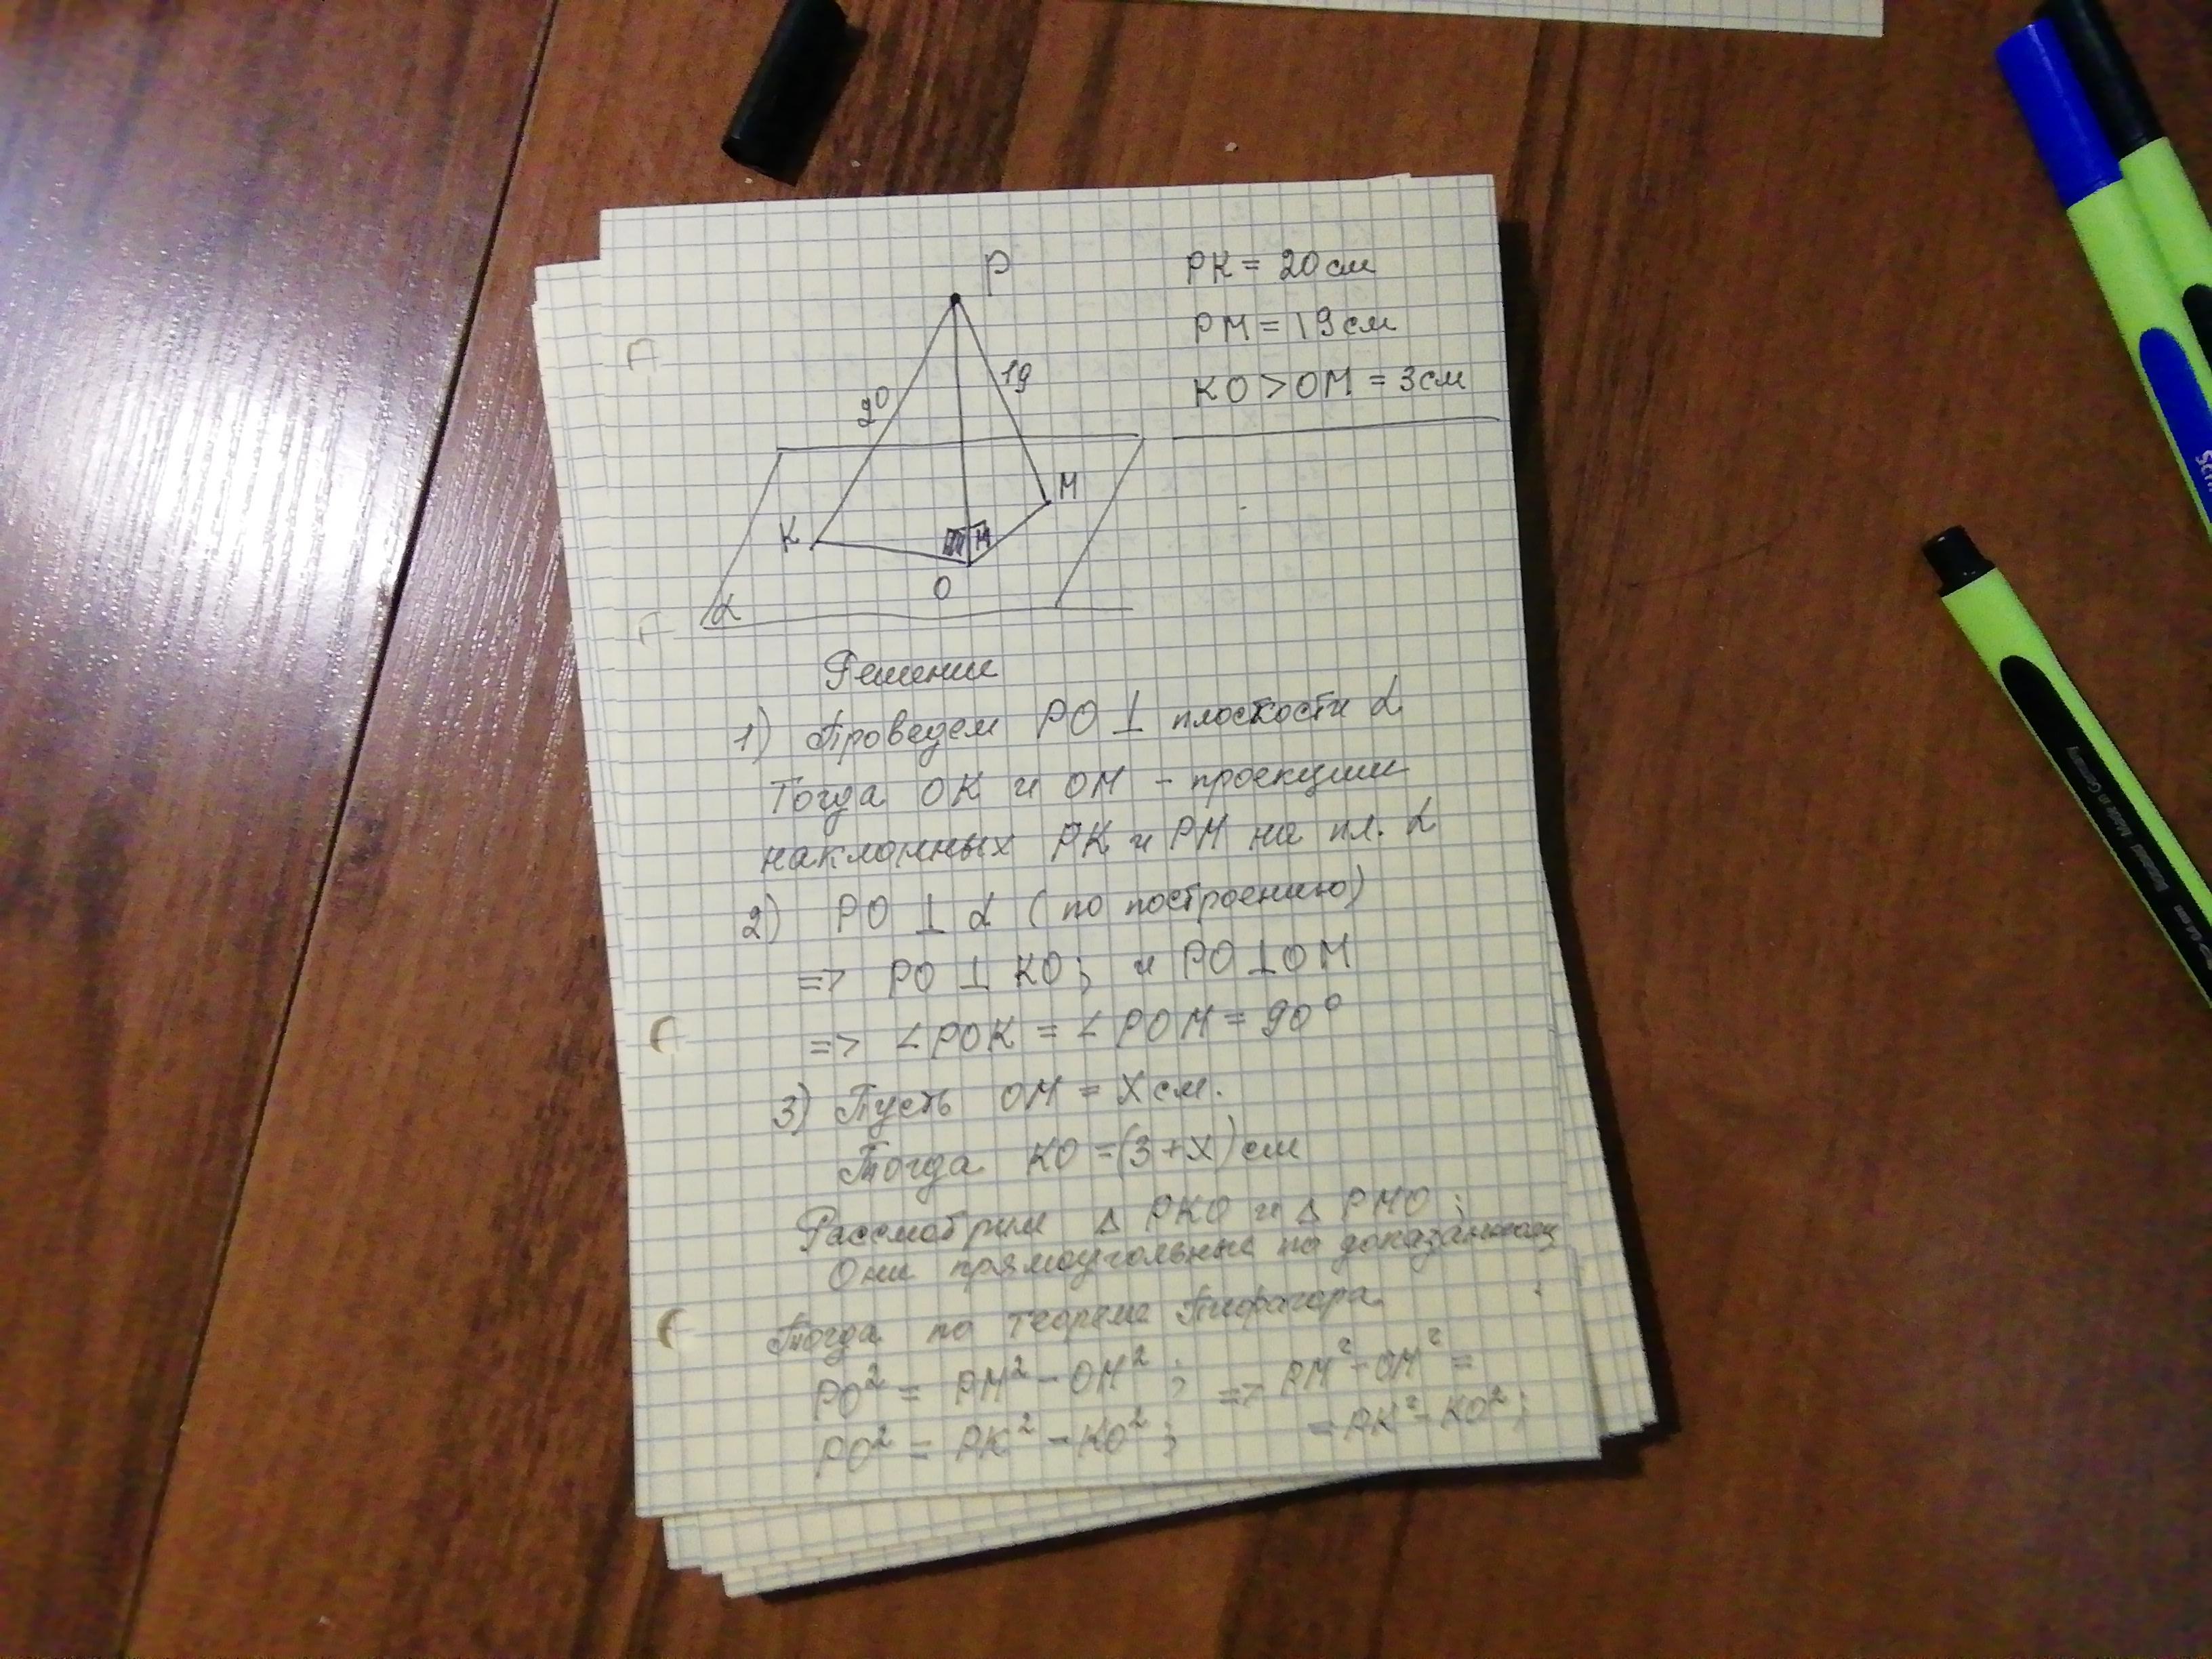 P
20
19
K
M
O
α
PK = 20 см
PM = 19 см
KO > OM = 3 см
Решение
1) Проведем PO ⊥ плоскости α
Тогда OK и OM - проекции
наклонных PK и PM на пл. α
2) PO ⊥ α (по построению)
=> PO ⊥ KO; и PO ⊥ OM
=> ∠POK = ∠POM = 90°
3) Пусть OM = X см.
Тогда KO = (3+X) см
Рассмотрим Δ PKO и Δ PMO;
Они прямоугольные по доказанному
Тогда по теореме Пифагора
PO² = PM² - OM²; => PM² - OM² =
PO² = PK² - KO²; = PK² - KO²;
Made in Germany